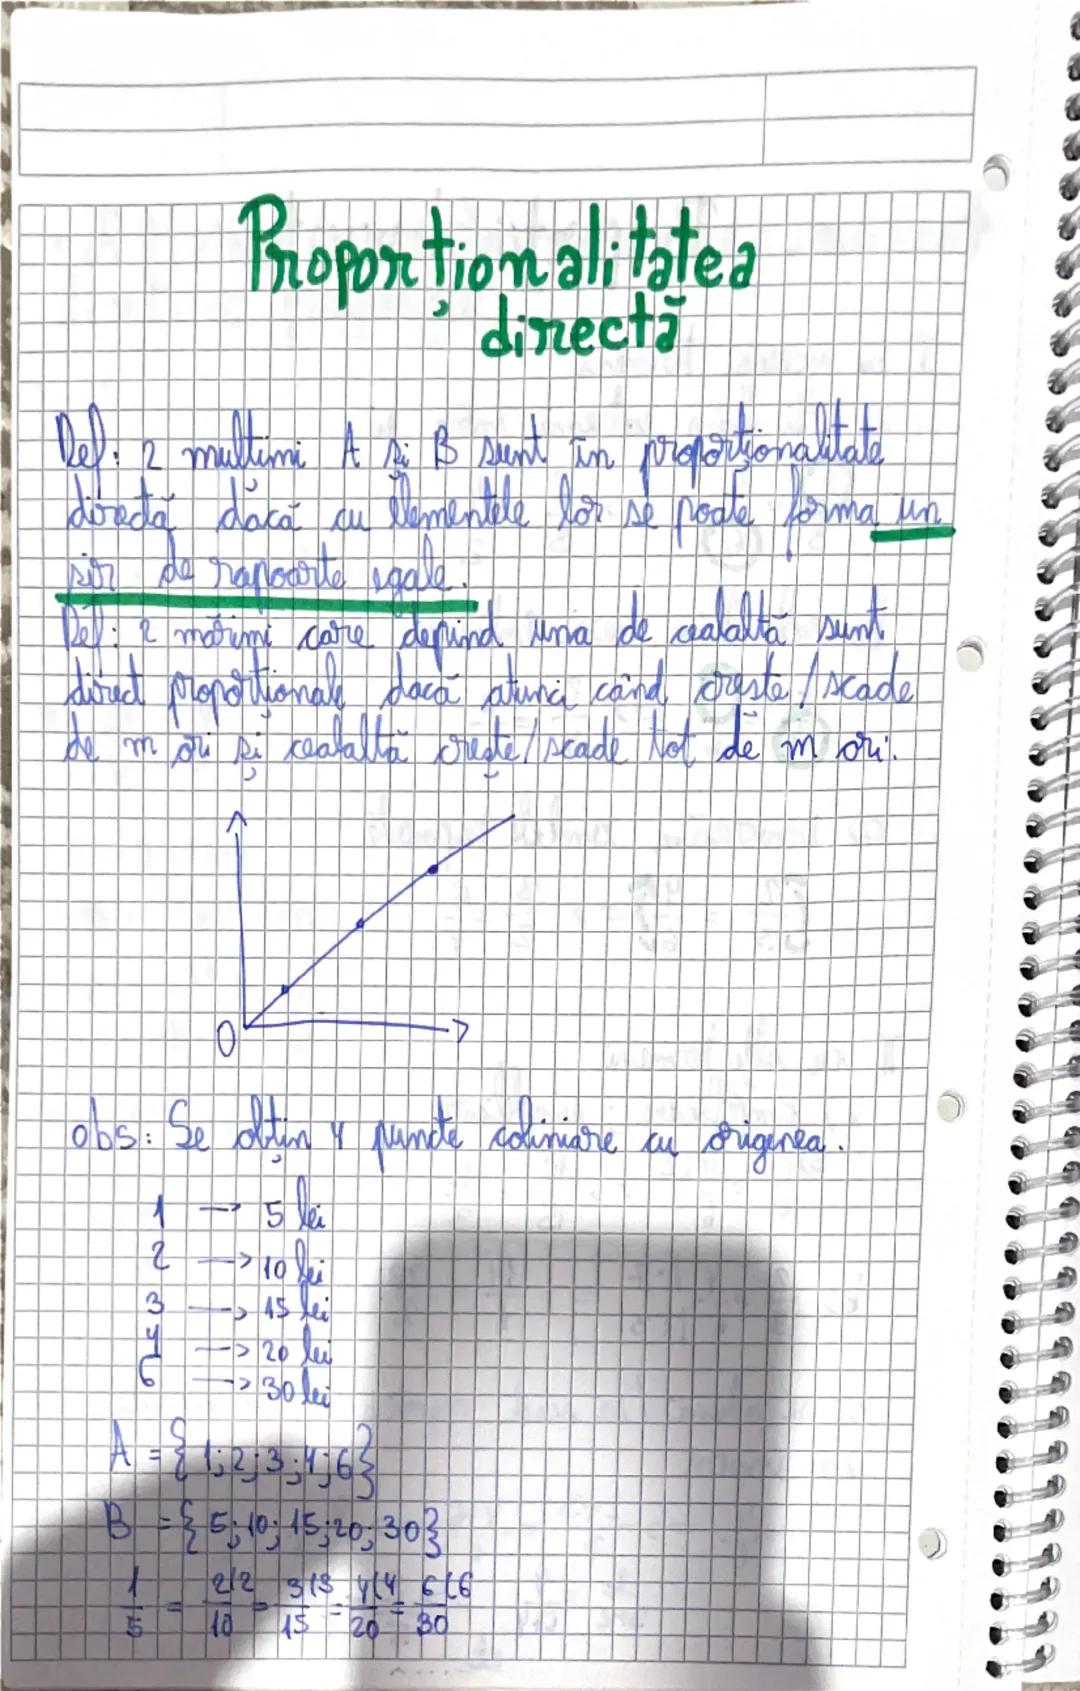 Proporționalitatea
directă
Def: 2 multimi A și B sunt în proporționalitate
directă dacă cu elementele lor se poate forma un
șir de rapoarte egale.
Def: 2 mărimi care depind una de cealaltă sunt
direct proporționale dacă atunci când crește/scade
de m ori și cealaltă crește/scade tot de m ori.
O
obs: Se obțin 4 puncte coliniare cu originea.
1 → 5 lei
2 → 10 lei
3 → 15 lei
4 → 20 lei
6 → 30 lei
A = {1; 2; 3; 4; 6}
B = {5; 10; 15; 20; 30}
1/5 = 2(2/10 = 3(3/15 = 4(4/20 = 6(6/30